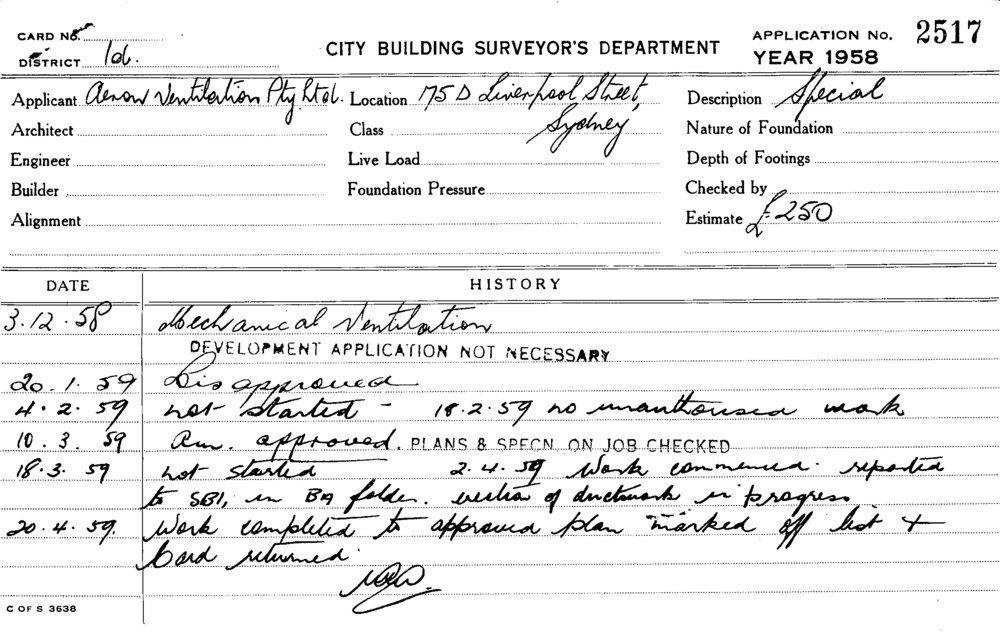 CARD No.
DISTRICT 1d.
CITY BUILDING SURVEYOR'S DEPARTMENT
APPLICATION No. 2517
YEAR 1958
Applicant Aerow Ventilation Pty Ltd. Location 175 D Liverpool Street, Sydney Description Special
Architect Class Nature of Foundation
Engineer Live Load Depth of Footings
Builder Foundation Pressure Checked by
Alignment Estimate £250
DATE HISTORY
3.12.58 Mechanical Ventilation
DEVELOPMENT APPLICATION NOT NECESSARY
20.1.59 Disapproved
4.2.59 not started - 18.2.59 no unauthorised work
10.3.59 Am. approved. PLANS & SPECN. ON JOB CHECKED
18.3.59 not started 2.4.59 Work commenced. reported
to SBI, in BA folder. erection of ductwork in progress
20.4.59. Work completed to approved plan marked off list +
Card returned.
C OF S 3638